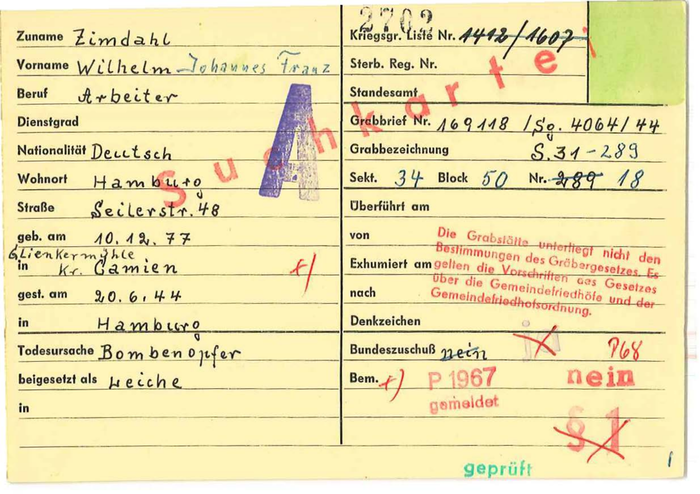 2702
Zuname Zimdahl
Vorname Wilhelm Johannes Franz
Beruf Arbeiter
Dienstgrad
Nationalität Deutsch
Wohnort Hamburg
Straße Seilerstr. 48
geb. am 10.12.77
Glienkermühle
in Kr. Camien
gest. am 20.6.44
in Hamburg
Todesursache Bombenopfer
beigesetzt als Leiche
in
A
Suchkartei
+)
Kriegsgr. Liste Nr. 1412/1607
Sterb. Reg. Nr.
Standesamt
Grabbrief Nr. 169118 / Sg. 4064/44
Grabbezeichnung S.31-289
Sekt. 34 Block 50 Nr. 289 18
Überführt am
von
Exhumiert am
nach
Die Grabstätte unterliegt nicht den
Bestimmungen des Gräbergesetzes. Es
gelten die Vorschriften des Gesetzes
über die Gemeindefriedhöfe und der
Gemeindefriedhofsordnung.
Denkzeichen
Bundeszuschuß nein ja P68
Bem. +) P 1967 nein
gemeldet
§ 1
geprüft